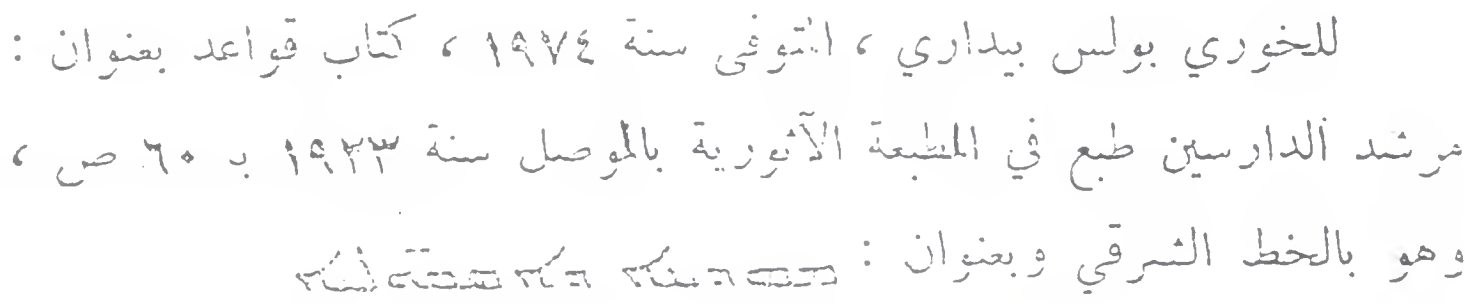 للخوري بولس بيداري ، المتوفى سنة ١٩٧٤ ، كتاب قواعد بعنوان :
مرشد الدارسين طبع في المطبعة الآثورية بالموصل سنة ١٩٢٣ بـ ٦٠ ص ،
وهو بالخط الشرقي وبعنوان :